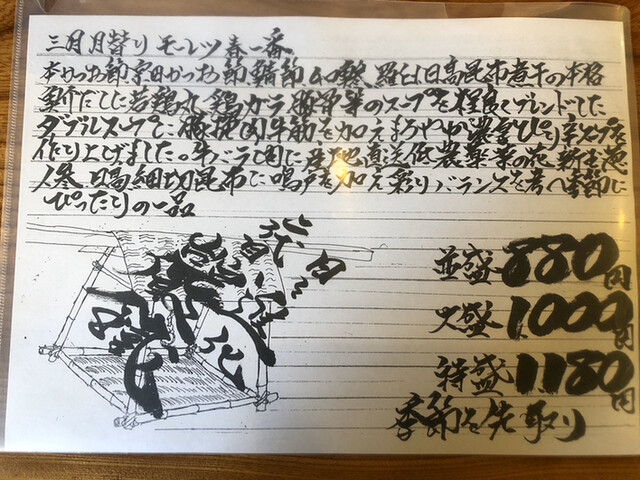 三月月替り モーレツ春一番
本かつお節宗田かつお節鯖節ムロ鯵 羅臼日高昆布煮干の本格
魚介だしに若鶏丸鶏ガラ豚骨等のスープを程良くブレンドした
ダブルスープに豚挽肉牛筋を加えまろやか濃厚ぴり辛スープを
作り上げました。牛バラ肉に産地直送低農薬菜の花新玉葱
人参日高細切昆布に鳴戸を加え彩りバランスを考へ季節に
ぴったりの一品
並盛880円
大盛1.000円
特盛1.180円
季節を先取り